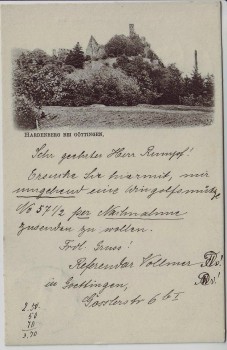 HARDENBERG BEI GÖTTINGEN.
Sehr geehrter Herr Rumpf!
Ersuche Sie hiermit, mir
umgehend eine Wingolfsmütze
No 57 1/2 per Nachnahme
zusenden zu wollen.
Frdl. Gruss!
Referendar Vollmer
in Goettingen,
Gosslerstr 6
2.50
50
70
3.70